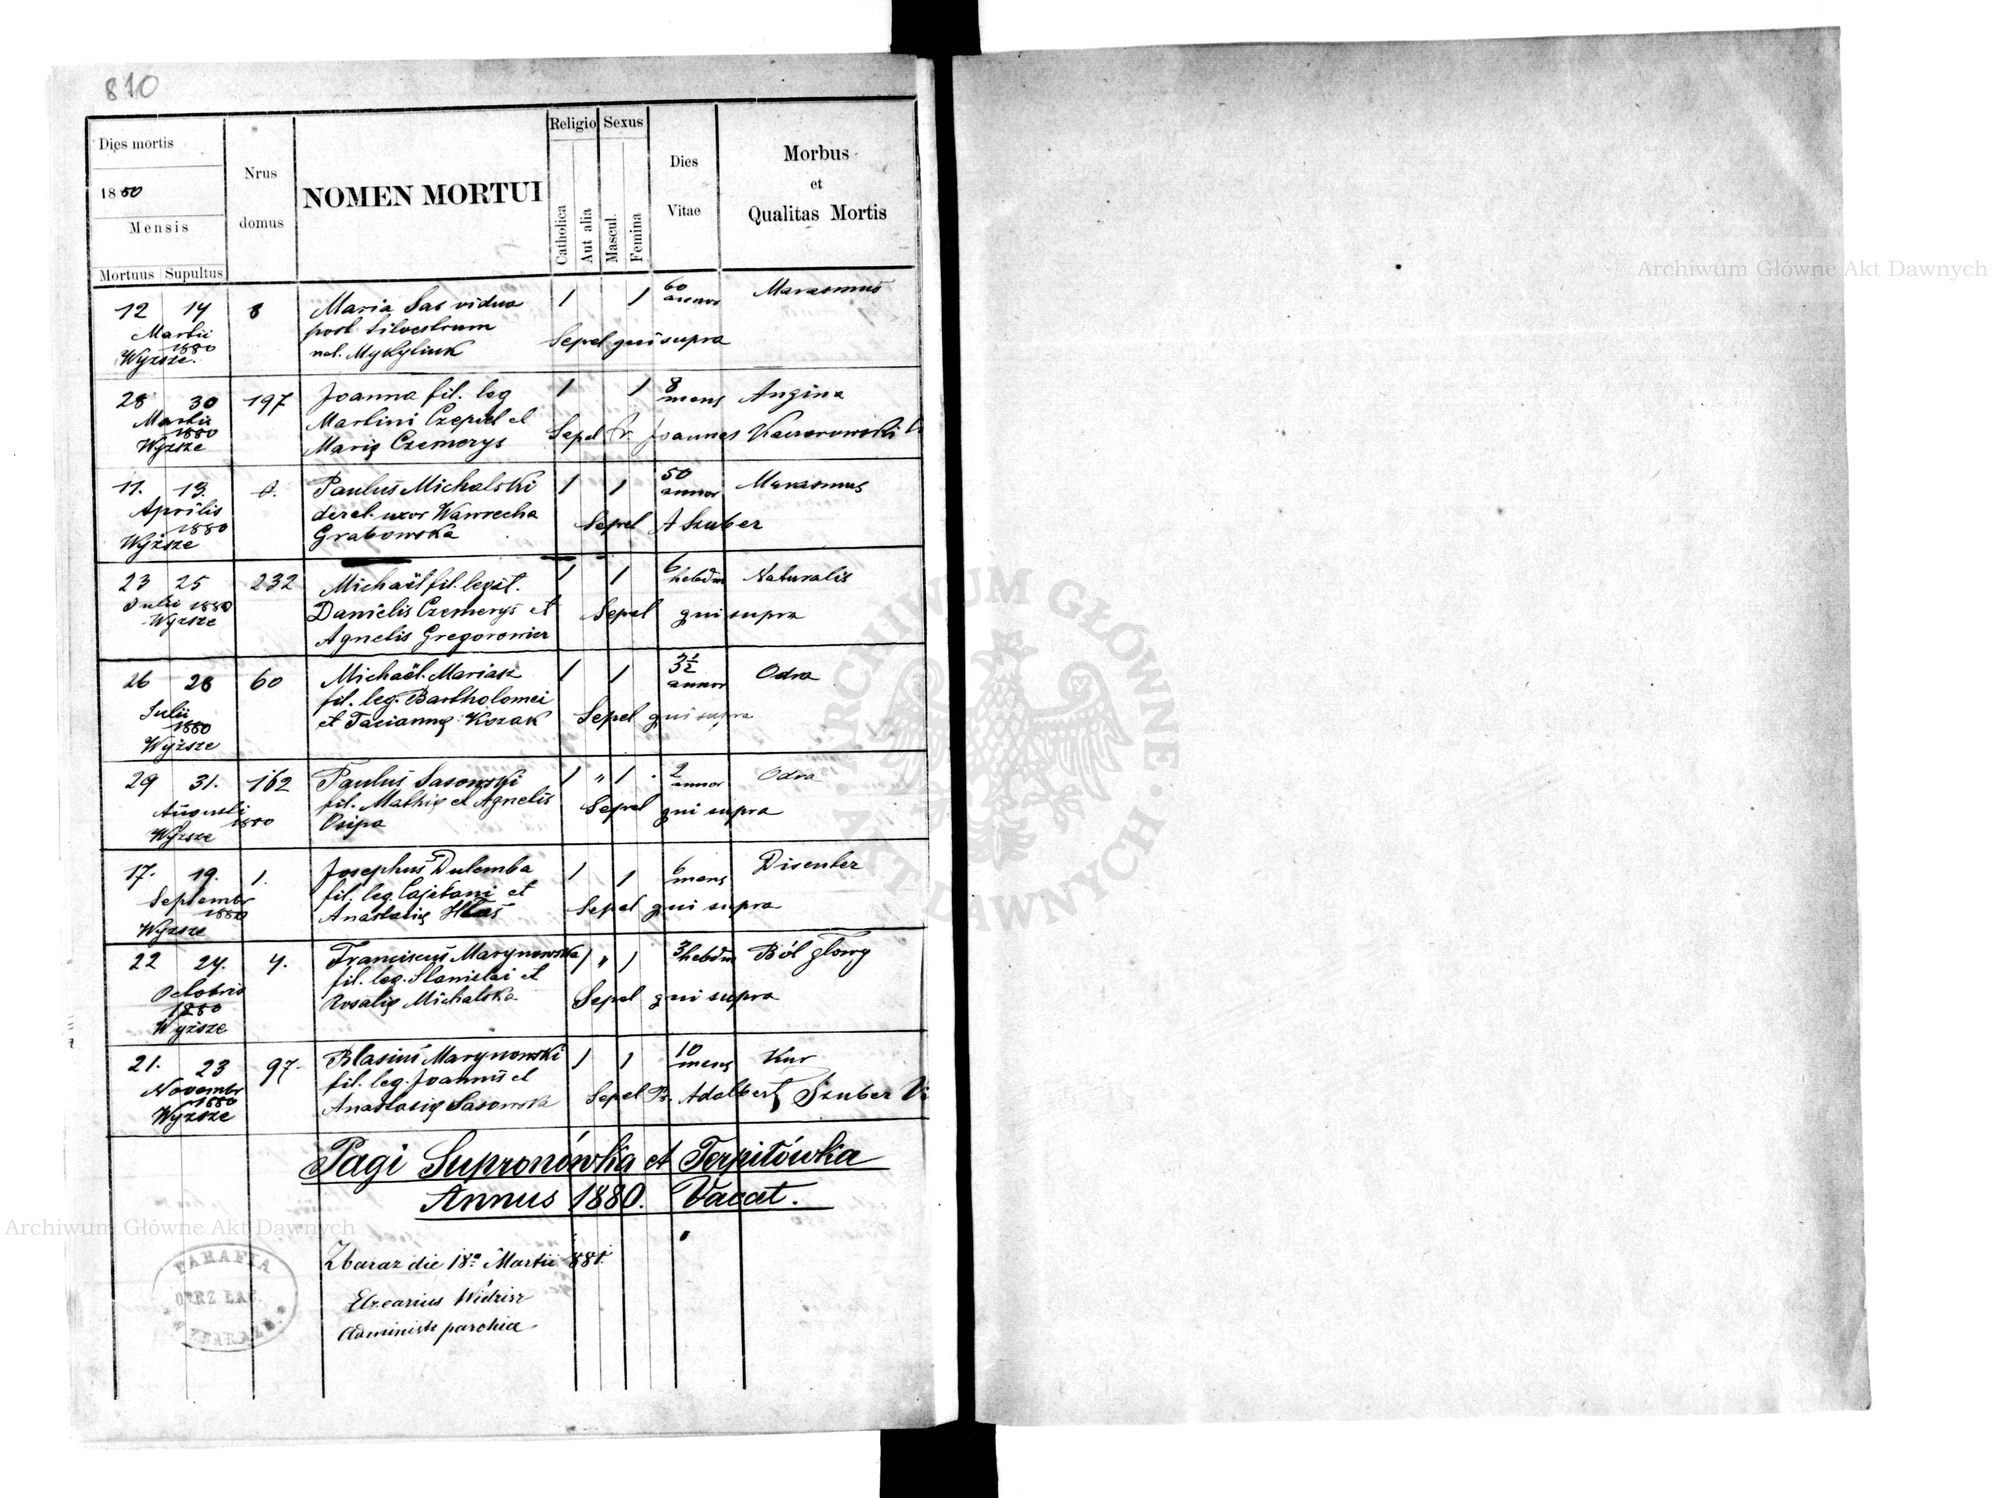 810
Dies mortis
1880
Mensis
Mortuus Supultus
Nrus
domus
NOMEN MORTUI
Religio
Catholica
Aut alia
Sexus
Mascul.
Femina
Dies
Vitae
Morbus
et
Qualitas Mortis
12 14 8 Maria Sas vidua 1 1 60 annor Marasmus
Martii post Silvestrum
1880 Sepel qui supra
Wyzsze. nat. Mykyliuk
28 30 197 Joanna fil. leg 1 1 8 mens Angina
Martii Martini Czepil et
1880 Sepel Fr. Joannes
Wyzsze Marię Czemerys
11. 13. Paulus Michalski 1 1 50 annor Marasmus
Aprilis derel. uxor Wawrecha
1880 Sepel A Szuber
Wyższe Grabowska
23 25 232 Michaël fil. legit. 1 1 6 hebdm Naturalis
Julii 1880 Danielis Czemerys et Sepel qui supra
Wyzsze Agnetis
26 28 60 Michaël Mariasz 1 1 3½ annor Odra
Julii fil. leg. Bartholomei
1880 et Taciannę Kozak Sepel qui supra
Wyższe
29 31. 162 Paulus Sasowski 1 " 1 2 annor Odra
Augusti fil. Mathię et Agnetis Sepel qui supra
1880
Wyższe Osipa
17. 19. 1. Josephus Dulemba 1 1 6 mens Disenter
Septembr fil. leg. Cajetani et
1880 Anastasię Sepel qui supra
Wyzsze
22 24. 4. Franciscus Marynowska 1 " 1 3 hebdm Ból głowy
Octobris fil. leg. Stanislai et
1880 Rosalię Michalska Sepel qui supra
Wyższe
21. 23 97. Blasius Marynowski 1 1 10 mens Kur
Novembr fil. leg. Joannis et
1880 Anastasię Sasowska Sepel Adalbert Szuber
Wyzsze
Pagi Supronówka et Terpiłówka
Annus 1880. Vacat.
Zbaraz die 18ª Martii 881.
Elzearius
Administr parohiæ
PARAFIA
OBRZ ŁAC.
ZBARAZU
Archiwum Główne Akt Dawnych
Archiwum Główne Akt Dawnych
ARCHIWUM GŁÓWNE
AKT DAWNYCH